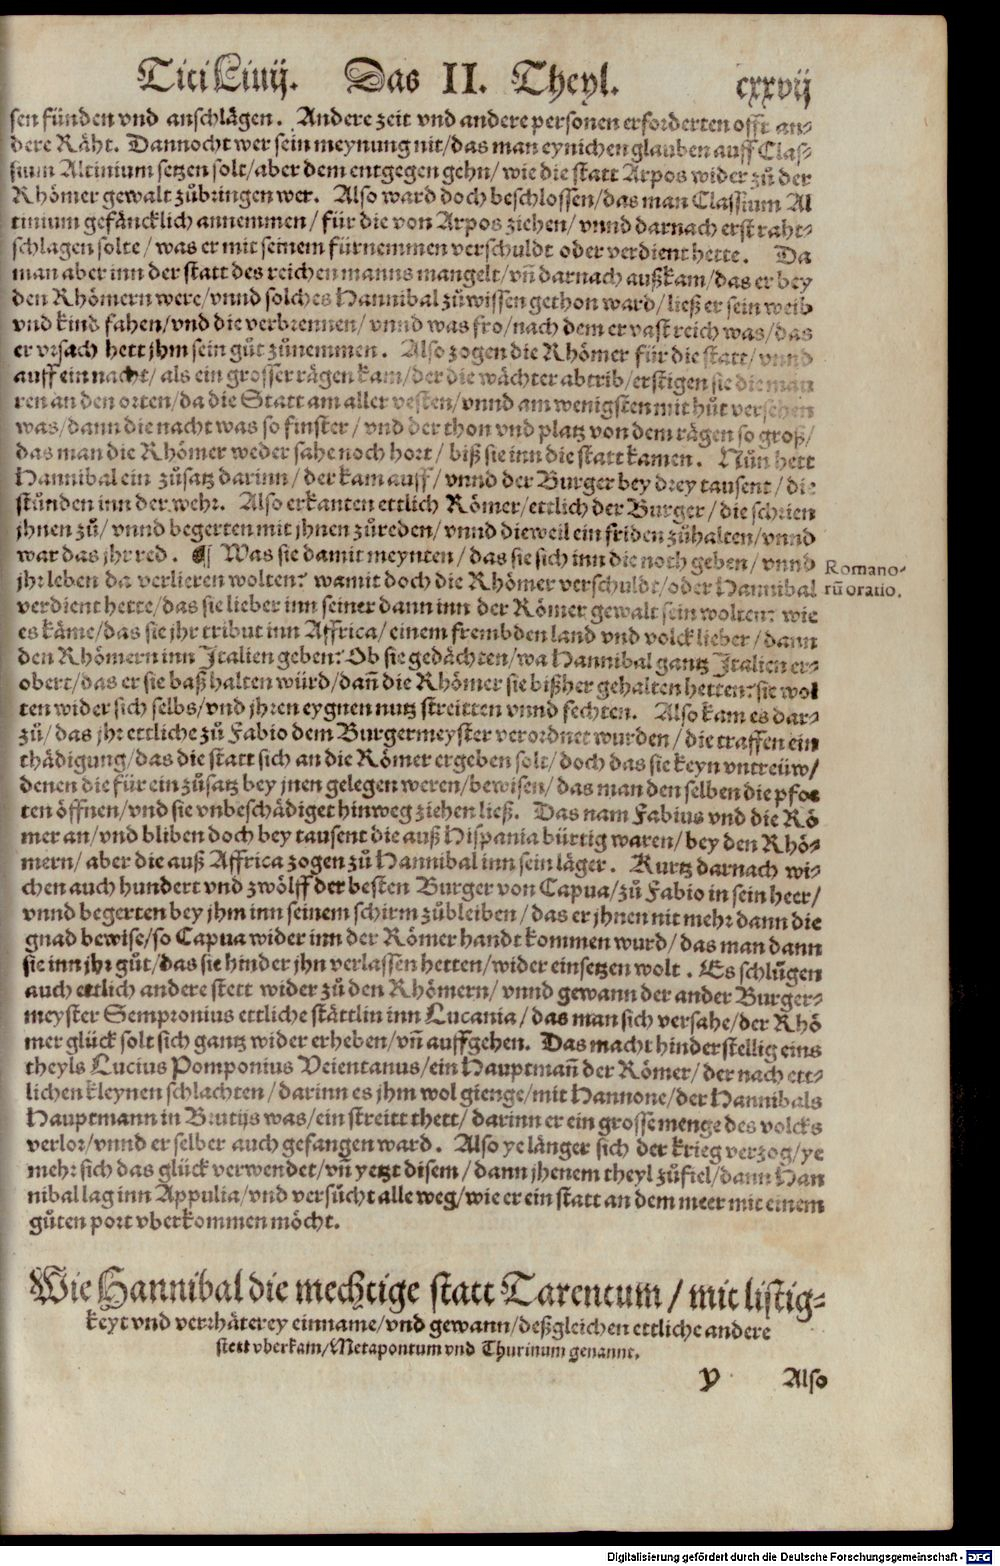 Titi Liuij. Das II. Theyl. cxxvij
sen fünden vnd anschlägen. Andere zeit vnd andere personen erforderten offt an⸗
dere Räht. Dannocht wer sein meynung nit/ das man eynichen glauben auff Clas⸗
sium Altinium setzen solt/ aber dem entgegen gehn/ wie die statt Arpos wider zů der
Rhömer gewalt zůbringen wer. Also ward doch beschlossen/ das man Classium Al
tinium gefäncklich annemmen/ für die von Arpos ziehen/ vnnd darnach erst raht⸗
schlagen solte/ was er mit seinem fürnemmen verschuldt oder verdient hette. Da
man aber inn der statt des reichen manns mangelt/ vñ darnach außkam/ das er bey
den Rhömern were/ vnnd solches Hannibal zůwissen gethon ward/ ließ er sein weib
vnd kind fahen/ vnd die verbrennen/ vnnd was fro/ nach dem er vast reich was/ das
er vrsach hett jhm sein gůt zůnemmen. Also zogen die Rhömer für die statt/ vnnd
auff ein nacht/ als ein grosser rägen kam/ der die wächter abtrib/ erstigen sie die mau
ren an den orten/ da die Statt am aller vesten/ vnnd am wenigsten mit hůt versehen
was/ dann die nacht was so finster/ vnd der thon vnd platz von dem rägen so groß/
das man die Rhömer weder sahe noch hort/ biß sie inn die statt kamen. Nůn hett
Hannibal ein zůsatz darinn/ der kam auff/ vnnd der Burger bey drey tausent/ die
stůnden inn der wehr. Also erkanten ettlich Römer/ ettlich der Burger/ die schrien
jhnen zů/ vnnd begerten mit jhnen zůreden/ vnnd dieweil ein friden zůhalten/ vnnd
war das jhr red. ¶ Was sie damit meynten/ das sie sich inn die noch geben/ vnnd
jhr leben da verlieren wolten? wamit doch die Rhömer verschuldt/ oder Hannibal
Romano⸗
rũ oratio.
verdient hette/ das sie lieber inn seiner dann inn der Römer gewalt sein wolten? wie
es käme/ das sie jhr tribut inn Affrica/ einem frembden land vnd volck lieber/ dann
den Rhömern inn Italien geben? Ob sie gedächten/ wa Hannibal gantz Italien er⸗
obert/ das er sie baß halten würd/ dañ die Rhömer sie bißher gehalten hetten? sie wol
ten wider sich selbs/ vnd jhren eygnen nutz streitten vnnd fechten. Also kam es dar⸗
zů/ das jhr ettliche zů Fabio dem Burgermeyster verordnet wurden/ die traffen ein
thädigung/ das die statt sich an die Römer ergeben solt/ doch das sie keyn vntreüw/
denen die für ein zůsatz bey jnen gelegen weren/ bewisen/ das man den selben die pfor
ten öffnen/ vnd sie vnbeschädiget hinweg ziehen ließ. Das nam Fabius vnd die Rö
mer an/ vnd bliben doch bey tausent die auß Hispania bürtig waren/ bey den Rhö⸗
mern/ aber die auß Affrica zogen zů Hannibal inn sein läger. Kurtz darnach wi⸗
chen auch hundert vnd zwölff der besten Burger von Capua/ zů Fabio in sein heer/
vnnd begerten bey jhm inn seinem schirm zůbleiben/ das er jhnen nit mehr dann die
gnad bewise/ so Capua wider inn der Römer handt kommen wurd/ das man dann
sie inn jhr gůt/ das sie hinder jhn verlassen hetten/ wider einsetzen wolt. Es schlůgen
auch ettlich andere stett wider zů den Rhömern/ vnnd gewann der ander Burger⸗
meyster Sempronius ettliche stättlin inn Lucania/ das man sich versahe/ der Rhö
mer glück solt sich gantz wider erheben/ vñ auffgehen. Das macht hinderstellig eins
theyls Lucius Pomponius Veientanus/ ein Hauptmañ der Römer/ der nach ett⸗
lichen kleynen schlachten/ darinn es jhm wol gienge/ mit Hannone/ der Hannibals
Hauptmann in Brutijs was/ ein streitt thett/ darinn er ein grosse menge des volcks
verlor/ vnnd er selber auch gefangen ward. Also ye länger sich der krieg verzog/ ye
mehr sich das glück verwendet/ vñ yetzt disem/ dann jhenem theyl zůfiel/ dann Han
nibal lag inn Appulia/ vnd versůcht alle weg/ wie er ein statt an dem meer mit einem
gůten port vberkommen möcht.
Wie Hannibal die mechtige statt Tarentum/ mit listig⸗
keyt vnd verrhäterey einname/ vnd gewann/ deßgleichen ettliche andere
stett vberkam/ Metapontum vnd Thurinum genannt.
y Also
Digitalisierung gefördert durch die Deutsche Forschungsgemeinschaft - DFG